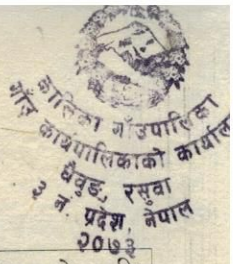 कालिका गाँउपालिका
गाँउ कार्यपालिकाको कार्यालय
धैवुङ, रसुवा
३ नं. प्रदेश, नेपाल
२०७३